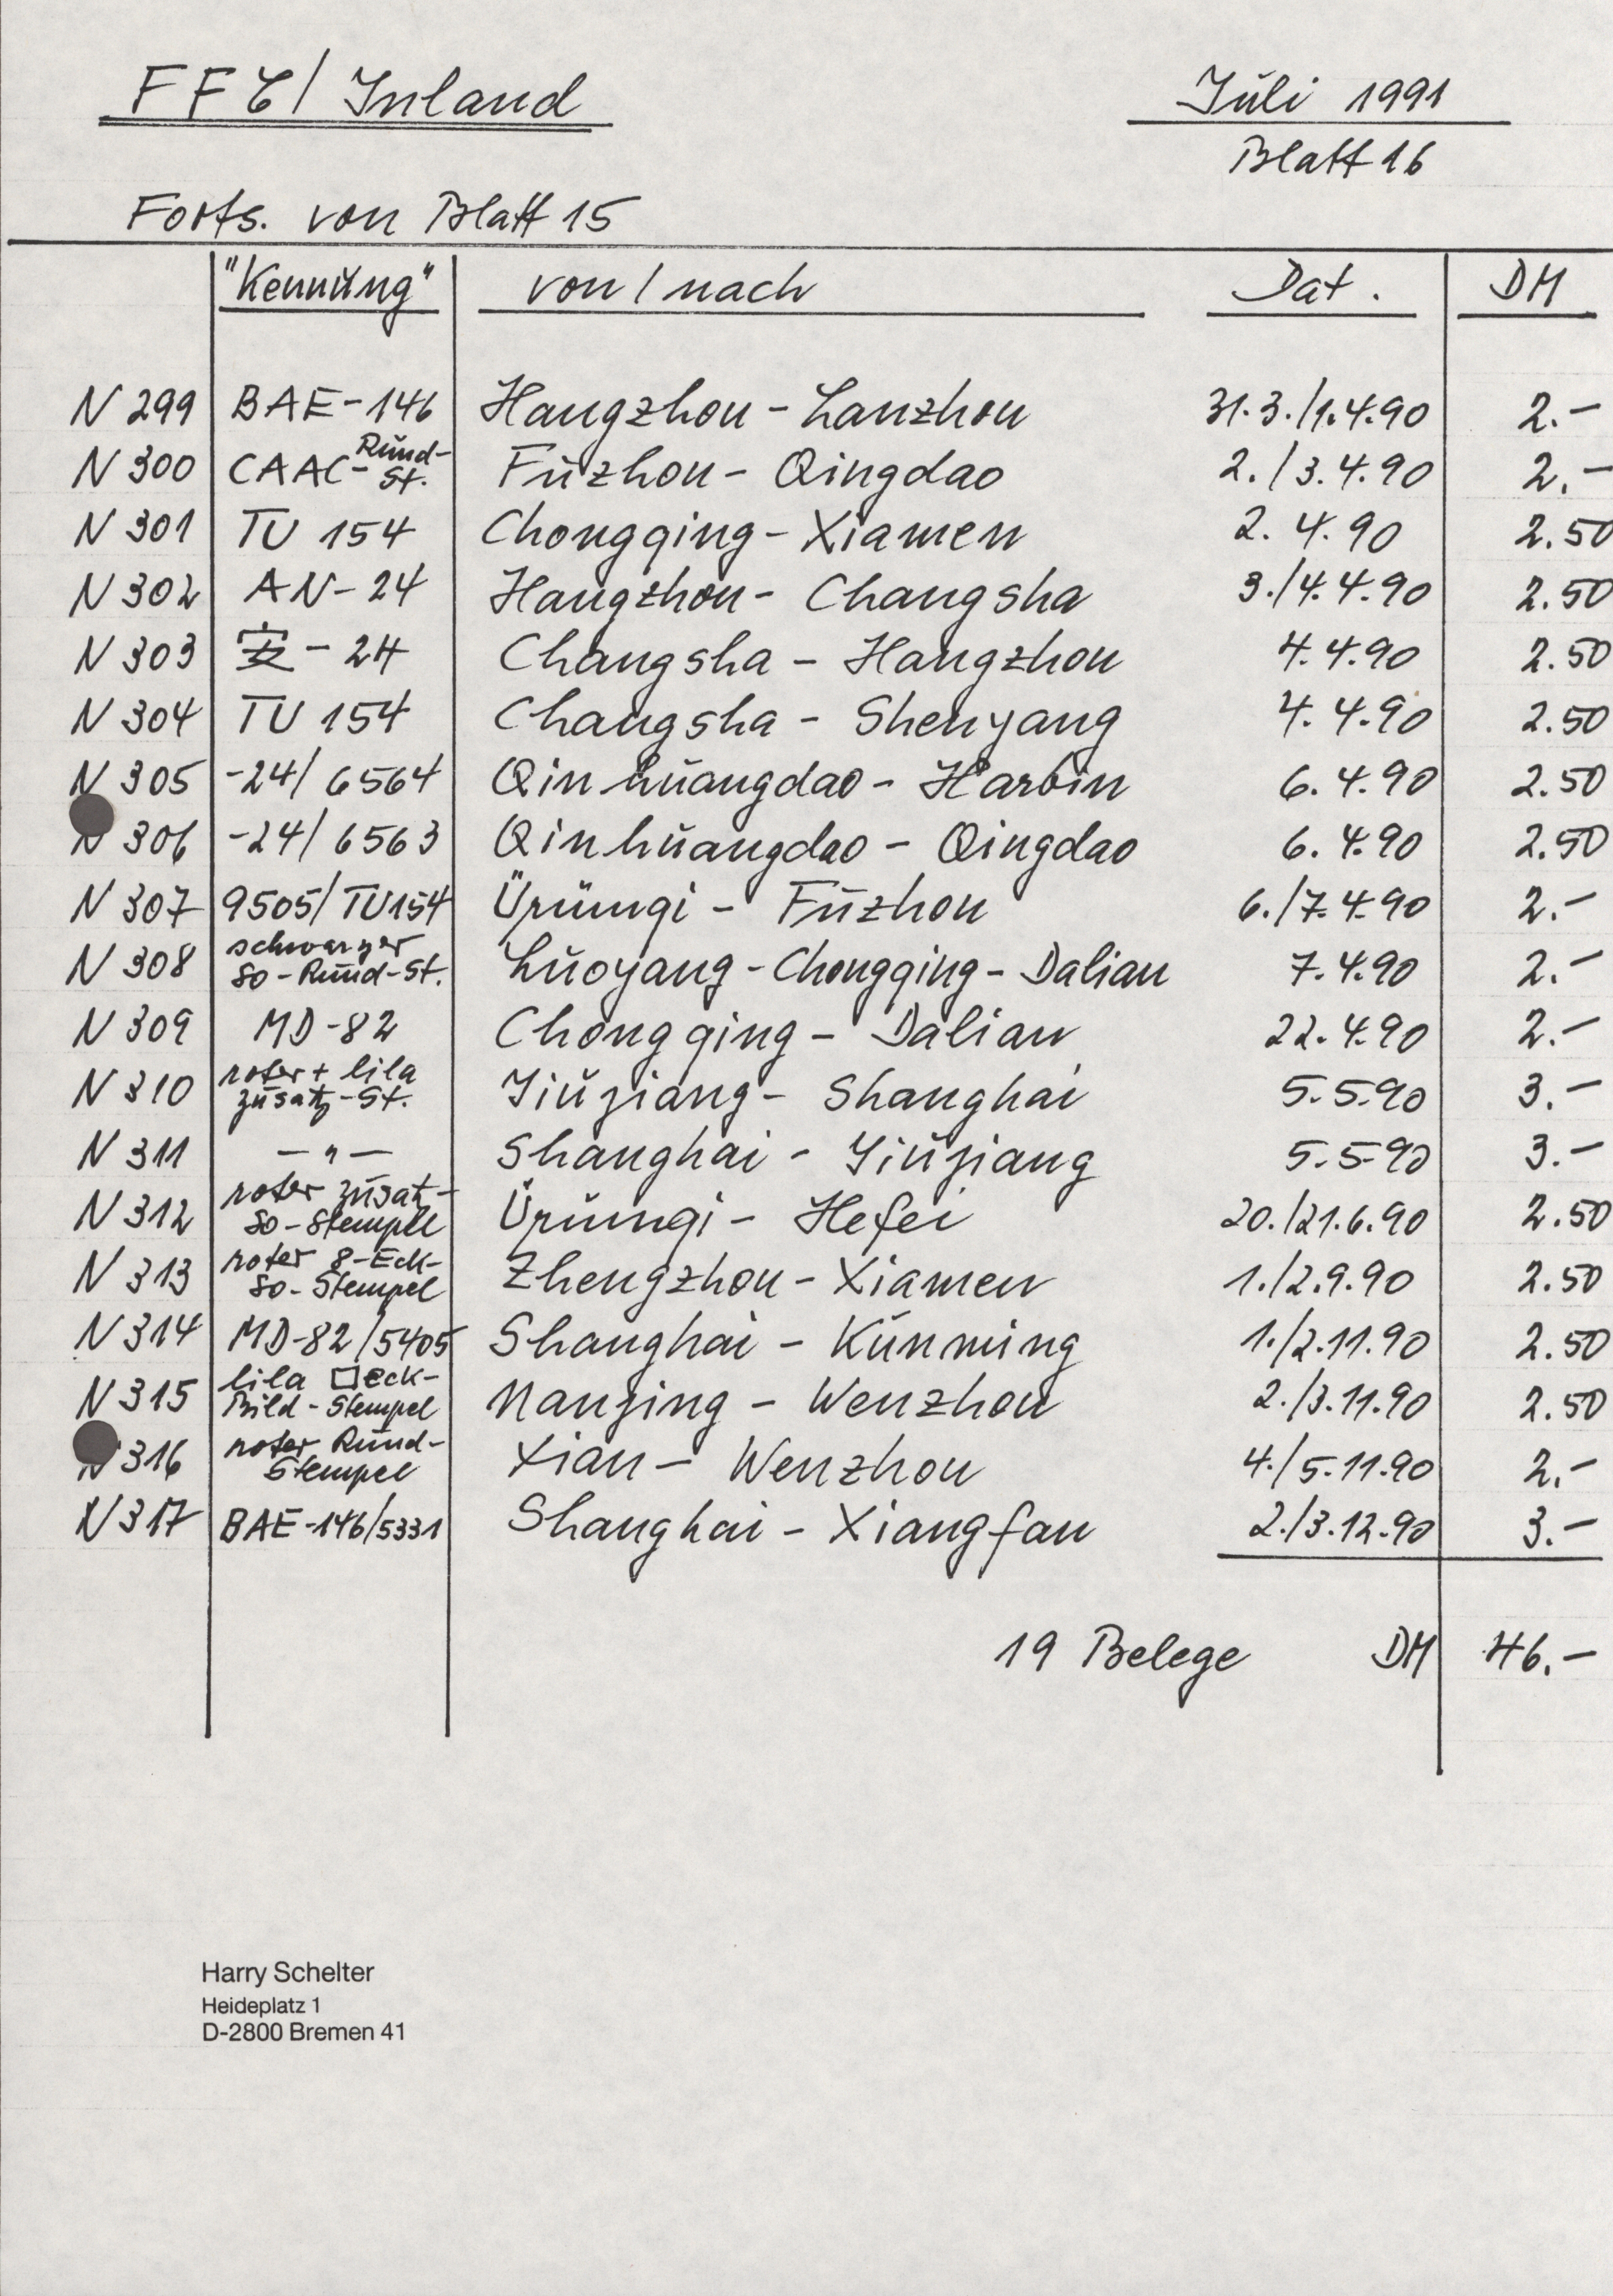 FFC / Inland Juli 1991
Blatt 16
Forts. von Blatt 15
"Kennung" von / nach Dat. DM
N 299 BAE-146 Hangzhou - Lanzhou 31.3./1.4.90 2.-
N 300 CAAC-Rund-St. Fuzhou - Qingdao 2./3.4.90 2.-
N 301 TU 154 Chongqing - Xiamen 2.4.90 2.50
N 302 AN-24 Hangzhou - Changsha 3./4.4.90 2.50
N 303 安-24 Changsha - Hangzhou 4.4.90 2.50
N 304 TU 154 Changsha - Shenyang 4.4.90 2.50
N 305 -24/6564 Qinhuangdao - Harbin 6.4.90 2.50
N 306 -24/6563 Qinhuangdao - Qingdao 6.4.90 2.50
N 307 9505/TU154 Ürümqi - Fuzhou 6./7.4.90 2.-
N 308 schwarzer So-Rund-St. Luoyang - Chongqing - Dalian 7.4.90 2.-
N 309 MD-82 Chongqing - Dalian 22.4.90 2.-
N 310 roter + lila Zusatz-St. Jiujiang - Shanghai 5.5.90 3.-
N 311 — " — Shanghai - Jiujiang 5.5.90 3.-
N 312 roter Zusatz-So-Stempel Ürümqi - Hefei 20./21.6.90 2.50
N 313 roter 8-Eck-So-Stempel Zhengzhou - Xiamen 1./2.9.90 2.50
N 314 MD-82/5405 Shanghai - Kunming 1./2.11.90 2.50
N 315 lila □eck-Bild-Stempel Nanjing - Wenzhou 2./3.11.90 2.50
N 316 roter Rund-Stempel Xian - Wenzhou 4./5.11.90 2.-
N 317 BAE-146/5331 Shanghai - Xiangfan 2./3.12.90 3.-
19 Belege DM 46.-
Harry Schelter
Heideplatz 1
D-2800 Bremen 41